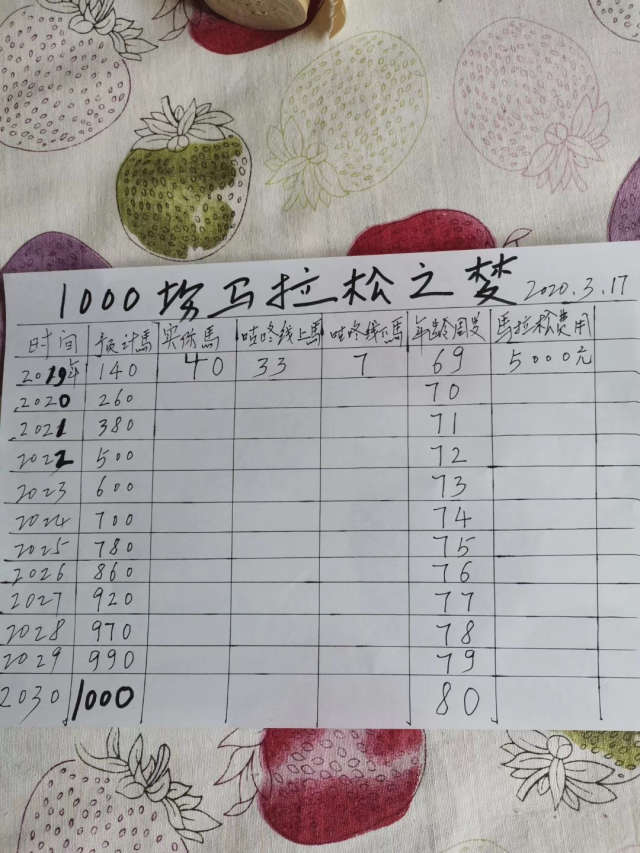 1000场马拉松之梦 2020.3.17
时间 预计馬 实际馬 咕咚线上馬 咕咚线下馬 年龄周岁 馬拉松费用
2019年 140 40 33 7 69 5000元
2020 260 70
2021 380 71
2022 500 72
2023 600 73
2024 700 74
2025 780 75
2026 860 76
2027 920 77
2028 970 78
2029 990 79
2030 1000 80